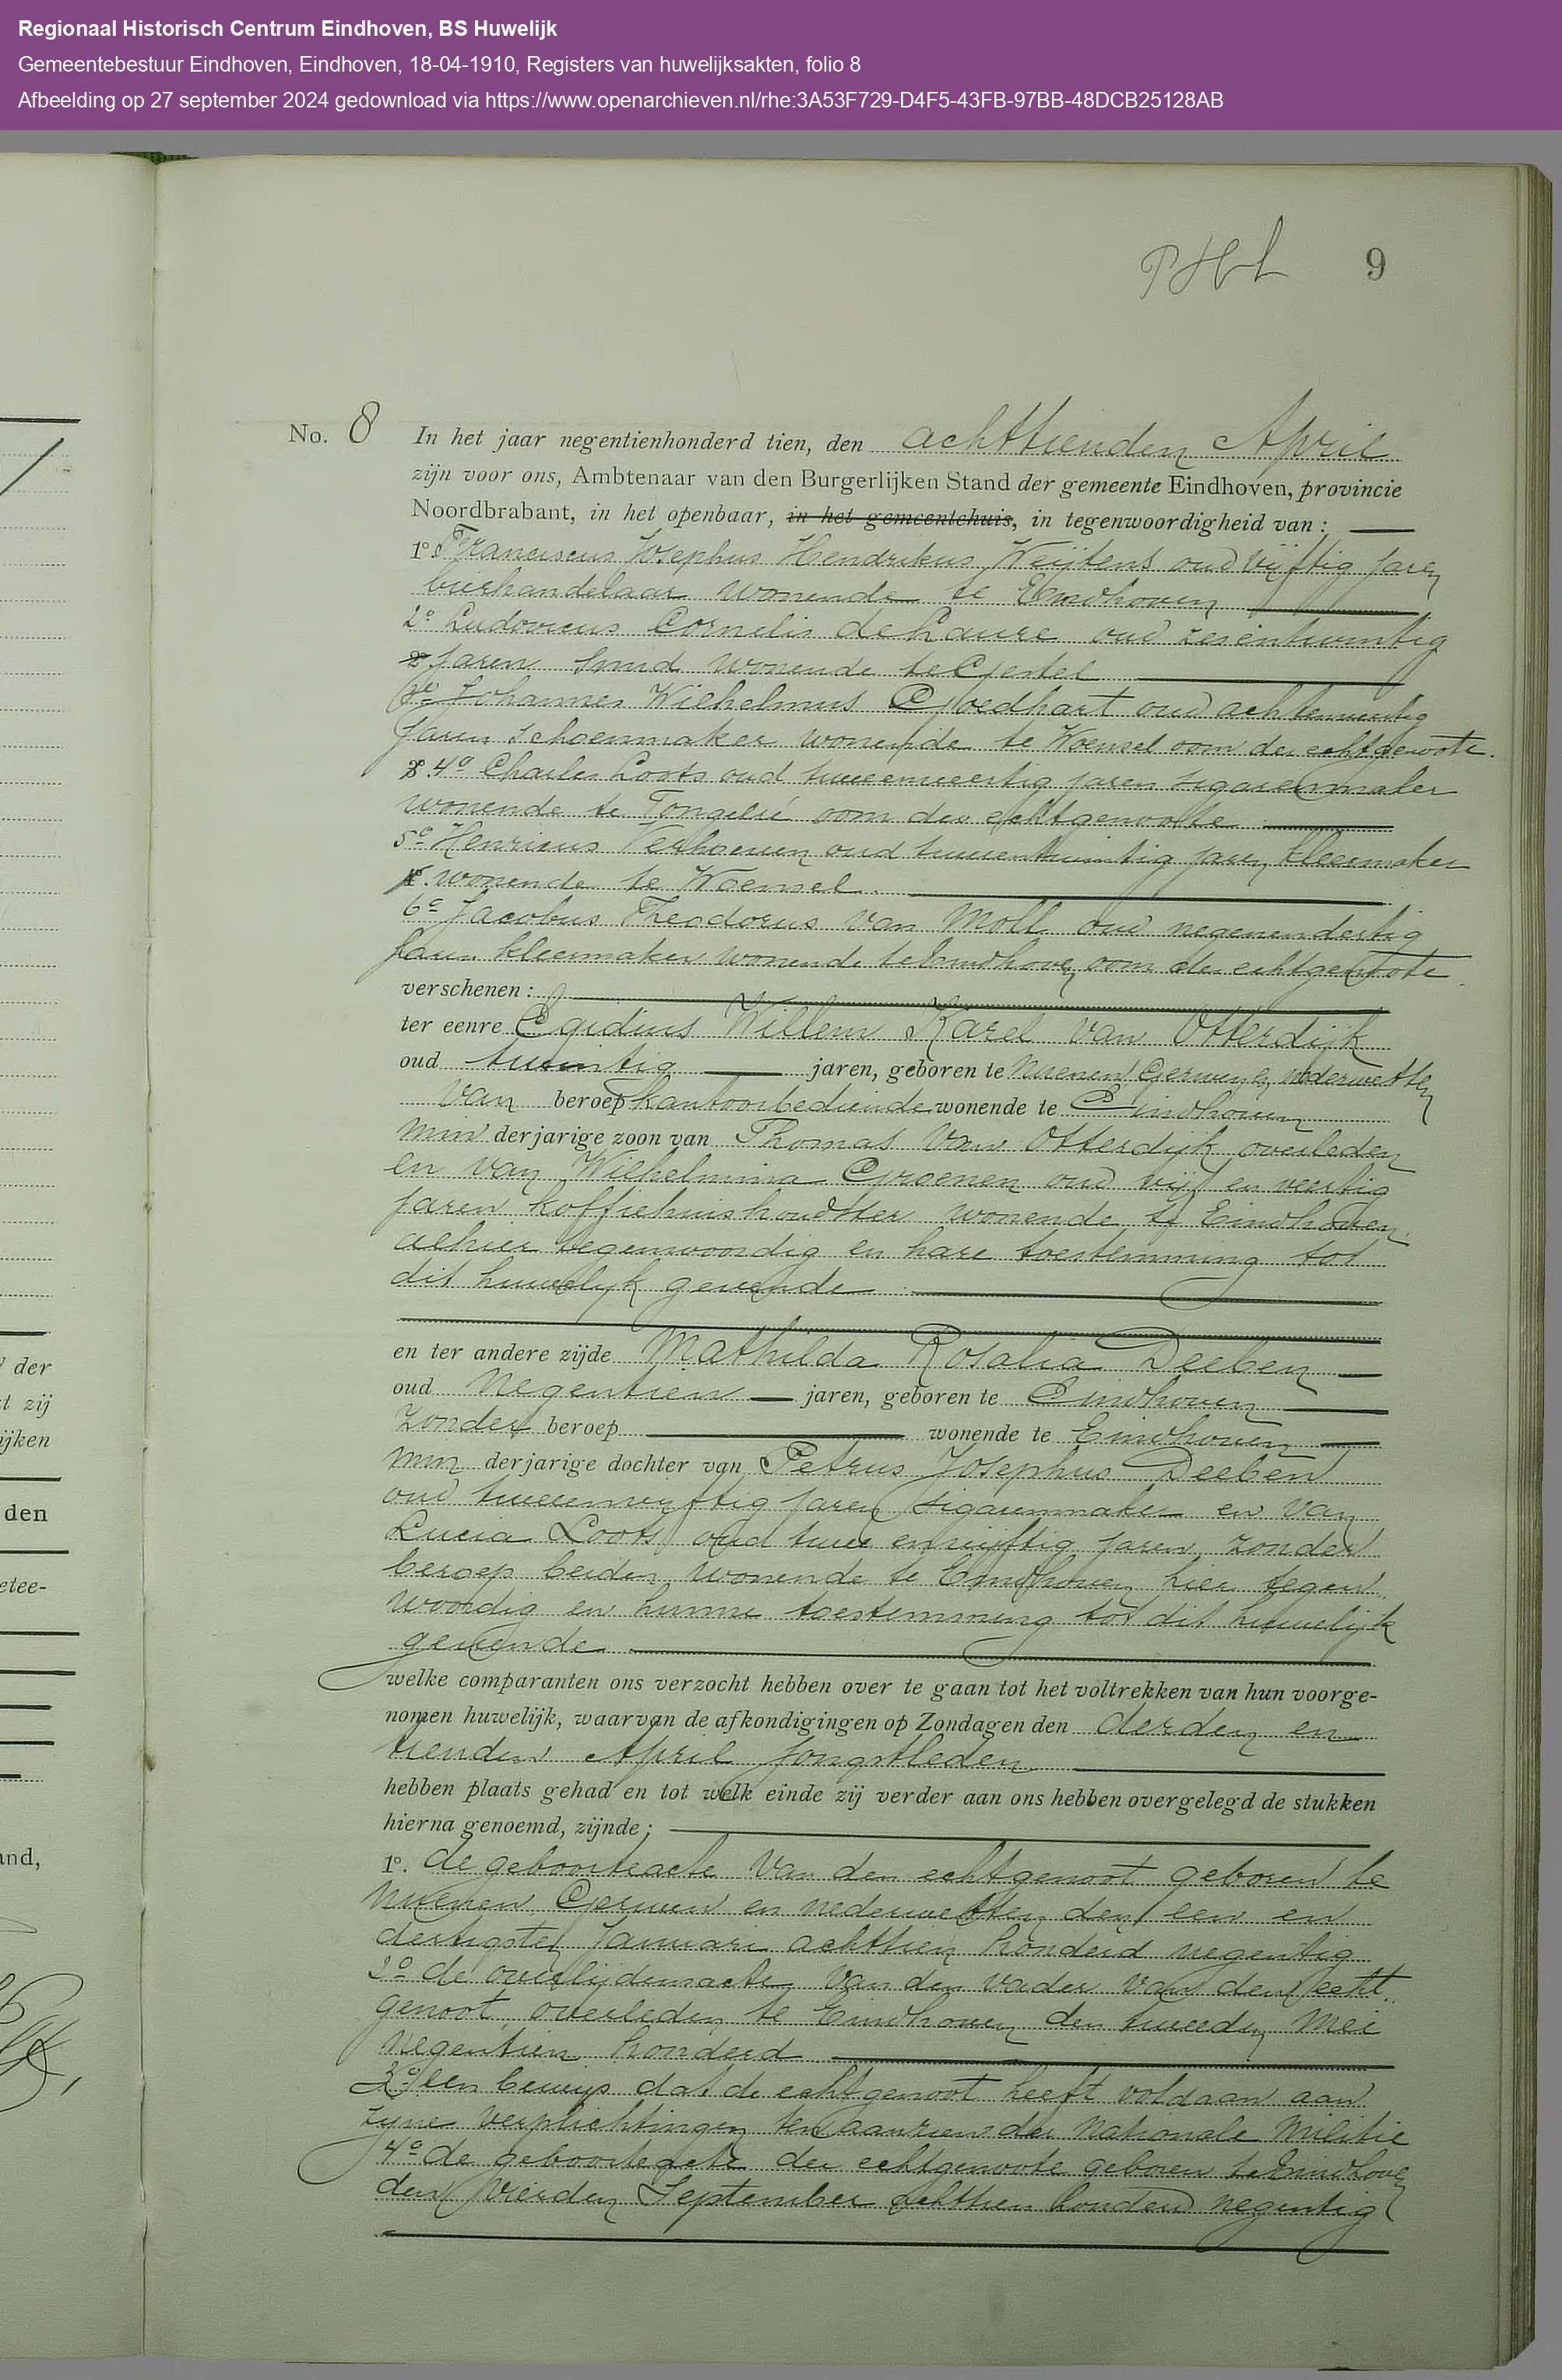 Regionaal Historisch Centrum Eindhoven, BS Huwelijk
Gemeentebestuur Eindhoven, Eindhoven, 18-04-1910, Registers van huwelijksakten, folio 8
Afbeelding op 27 september 2024 gedownload via https://www.openarchieven.nl/rhe:3A53F729-D4F5-43FB-97BB-48DCB25128AB
9
No. 8 In het jaar negentienhonderd tien, den achttienden April
zijn voor ons, Ambtenaar van den Burgerlijken Stand der gemeente Eindhoven, provincie
Noordbrabant, in het openbaar, in het gemeentehuis, in tegenwoordigheid van:
1º. Franciscus Josephus Hendrikus Weijtens oud vijftig jaren
bierhandelaar wonende te Eindhoven
2º Ludovicus Cornelis de Laure oud zesentwintig
jaren smid wonende te Gestel
3º Johannes Wilhelmus Goedhart oud achtenveertig
jaren schoenmaker wonende te Woensel oom der echtgenoote.
4º Charles Loots oud tweeenveertig jaren sigarenmaker
wonende te Tongelre oom der echtgenoote
5º Henricus Verhoeven oud tweeentwintig jaren kleermaker
wonende te Woensel.
6º Jacobus Theodorus van Moll oud negenendertig
jaren kleermaker wonende te Eindhoven oom der echtgenoote.
verschenen:
ter eenre Egidius Willem Karel van Otterdijk
oud twintig jaren, geboren te Nuenen Gerwen Nederwetten
van beroep kantoorbediende wonende te Eindhoven
min derjarige zoon van Thomas van Otterdijk overleden
en van Wilhelmina Groenen oud vijf en veertig
jaren koffiehuishoudster wonende te Eindhoven
alhier tegenwoordig en hare toestemming tot
dit huwelijk gevende
en ter andere zijde Mathilda Rosalia Deeben
oud negentien jaren, geboren te Eindhoven
zonder beroep wonende te Eindhoven
min derjarige dochter van Petrus Josephus Deeben
oud tweeenvijftig jaren sigarenmaker en van
Lucia Loots oud twee en vijftig jaren, zonder
beroep beiden wonende te Eindhoven hier tegen
woordig en hunne toestemming tot dit huwelijk
gevende
welke comparanten ons verzocht hebben over te gaan tot het voltrekken van hun voorge-
nomen huwelijk, waarvan de afkondigingen op Zondagen den derden en
tienden April jongstleden
hebben plaats gehad en tot welk einde zij verder aan ons hebben overgelegd de stukken
hierna genoemd, zijnde:
1º. de geboorteacte van den echtgenoot geboren te
Nuenen Gerwen en Nederwetten den een en
dertigsten Januari achttien honderd negentig
2º de overlijdensacte van den vader van den echt
genoot, overleden te Eindhoven den tweeden Mei
negentien honderd
3º een bewijs dat de echtgenoot heeft voldaan aan
zijne verplichtingen ten aanzien der Nationale Militie
4º de geboorteacte der echtgenoote geboren te Eindhoven
den vierden September achttien honderd negentig
der
t zij
ijken
den
etee-
and,